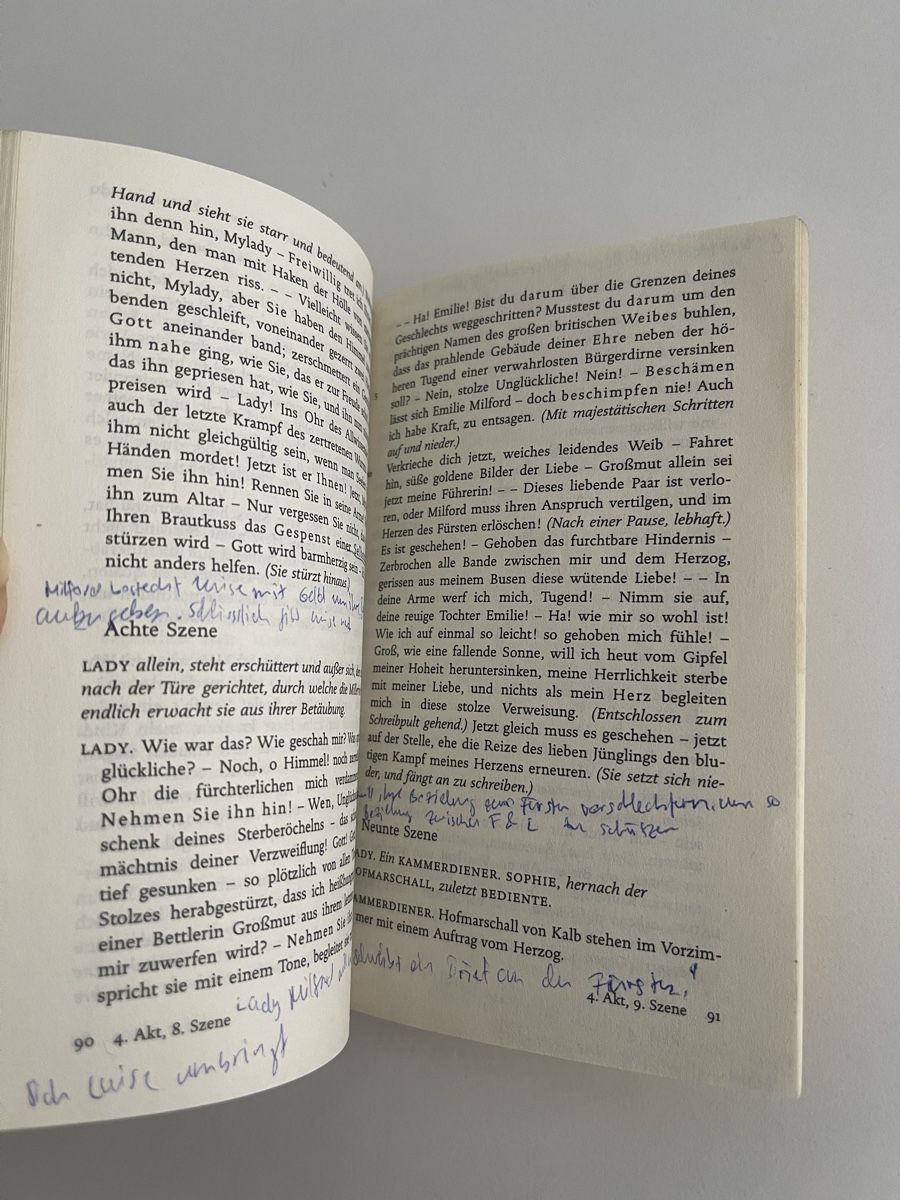 Hand und sieht sie starr und bedeutend an
ihn denn hin, Mylady – Freiwillig tret ich
Mann, den man mit Haken der Hölle von
tenden Herzen riss. – – Vielleicht wissen Sie
nicht, Mylady, aber Sie haben den Himmel
benden geschleift, voneinander gezerrt zwei
Gott aneinander band; zerschmettert ein
ihm nahe ging, wie Sie, das er zur Freude
das ihn gepriesen hat, wie Sie, und ihn nun
preisen wird – Lady! Ins Ohr des Allwissenden
auch der letzte Krampf des zertretenen Wurms
ihm nicht gleichgültig sein, wenn man Seelen
Händen mordet! Jetzt ist er Ihnen! Jetzt,
men Sie ihn hin! Rennen Sie in seine Arme!
ihn zum Altar – Nur vergessen Sie nicht, dass
Ihren Brautkuss das Gespenst einer
stürzen wird – Gott wird barmherzig sein –
nicht anders helfen. (Sie stürzt hinaus.)
Milford besticht Luise mit Geld um
aufzugeben. Schlisslich gibt Luise
Achte Szene
LADY allein, steht erschüttert und außer sich, den
nach der Türe gerichtet, durch welche die
endlich erwacht sie aus ihrer Betäubung.
LADY. Wie war das? Wie geschah mir? Was
glückliche? – Noch, o Himmel! noch
Ohr die fürchterlichen mich
Nehmen Sie ihn hin! – Wen,
schenk deines Sterberöchelns – das
mächtnis deiner Verzweiflung! Gott! Gott!
tief gesunken – so plötzlich von allen
Stolzes herabgestürzt, dass ich heißhungrig
einer Bettlerin Großmut aus ihrem
mir zuwerfen wird? – Nehmen Sie ihn
spricht sie mit einem Tone, begleitet sie
Lady Milford
90 4. Akt, 8. Szene
Luise umbringt
– – Ha! Emilie! Bist du darum über die Grenzen deines
Geschlechts weggeschritten? Musstest du darum um den
prächtigen Namen des großen britischen Weibes buhlen,
dass das prahlende Gebäude deiner Ehre neben der hö-
heren Tugend einer verwahrlosten Bürgerdirne versinken
soll? – Nein, stolze Unglückliche! Nein! – Beschämen
lässt sich Emilie Milford – doch beschimpfen nie! Auch
ich habe Kraft, zu entsagen. (Mit majestätischen Schritten
auf und nieder.)
Verkrieche dich jetzt, weiches leidendes Weib – Fahret
hin, süße goldene Bilder der Liebe – Großmut allein sei
jetzt meine Führerin! – – Dieses liebende Paar ist verlo-
ren, oder Milford muss ihren Anspruch vertilgen, und im
Herzen des Fürsten erlöschen! (Nach einer Pause, lebhaft.)
Es ist geschehen! – Gehoben das furchtbare Hindernis –
Zerbrochen alle Bande zwischen mir und dem Herzog,
gerissen aus meinem Busen diese wütende Liebe! – – In
deine Arme werf ich mich, Tugend! – Nimm sie auf,
deine reuige Tochter Emilie! – Ha! wie mir so wohl ist!
Wie ich auf einmal so leicht! so gehoben mich fühle! –
Groß, wie eine fallende Sonne, will ich heut vom Gipfel
meiner Hoheit heruntersinken, meine Herrlichkeit sterbe
mit meiner Liebe, und nichts als mein Herz begleiten
mich in diese stolze Verweisung. (Entschlossen zum
Schreibpult gehend.) Jetzt gleich muss es geschehen – jetzt
auf der Stelle, ehe die Reize des lieben Jünglings den blu-
tigen Kampf meines Herzens erneuren. (Sie setzt sich nie-
der, und fängt an zu schreiben.)
Beziehung zum Fürsten verschlechtern, um so
Beziehung zwischen F & L zu schützen
Neunte Szene
LADY. Ein KAMMERDIENER. SOPHIE, hernach der
HOFMARSCHALL, zuletzt BEDIENTE.
KAMMERDIENER. Hofmarschall von Kalb stehen im Vorzim-
mer mit einem Auftrag vom Herzog.
schreibt ein Brief an den Fürsten,
4. Akt, 9. Szene 91